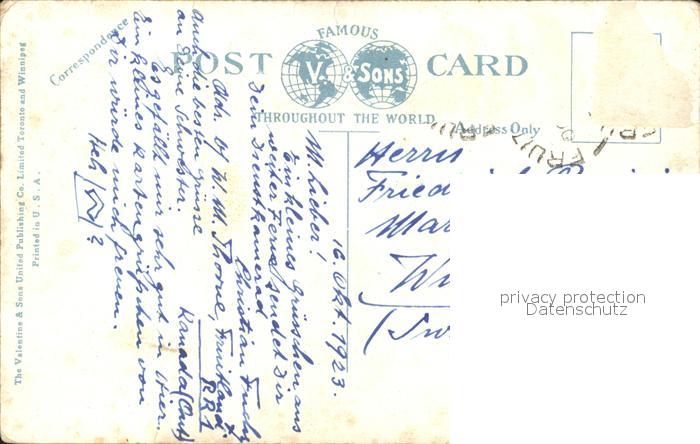 FAMOUS
POST CARD
V. & SONS
THROUGHOUT THE WORLD
Correspondence
Address Only
The Valentine & Sons United Publishing Co. Limited Toronto and Winnipeg
Printed in U.S.A.
16. Okt. 1923.
M. Lieber!
Ein kleines Grüsschen aus
weiter Ferne sendet Dir
Dein Dienstkamerad
Christian
Adr. b/ W. M. Thorne, Fruitland.
RR1
Kanada (Ont)
Auch die besten Grüsse
an Deine Schwester.
Es gefällt mir sehr gut in hier.
Ein kleines Kartengrüsschen von
Dir würde mich freuen.
Herrn
Fried
Mar
privacy protection
Datenschutz